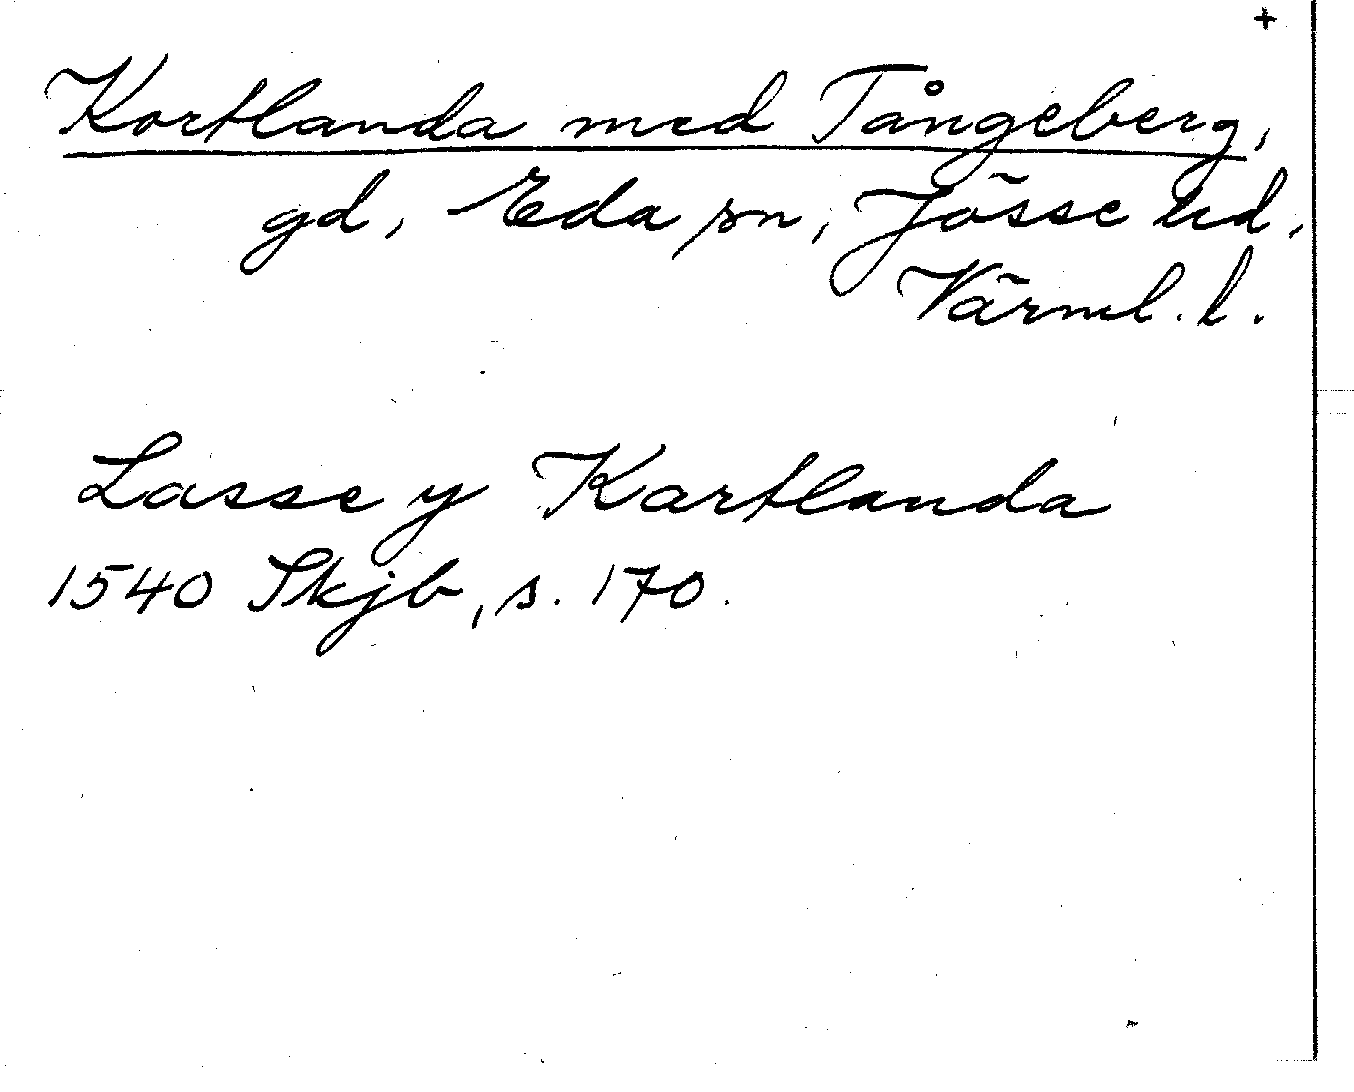 +
Kortlanda med Tångeberg,
gd, Eda sn, Jösse hd,
Värml. l.
Lasse y Kartlanda
1540 Skjb, s. 170.